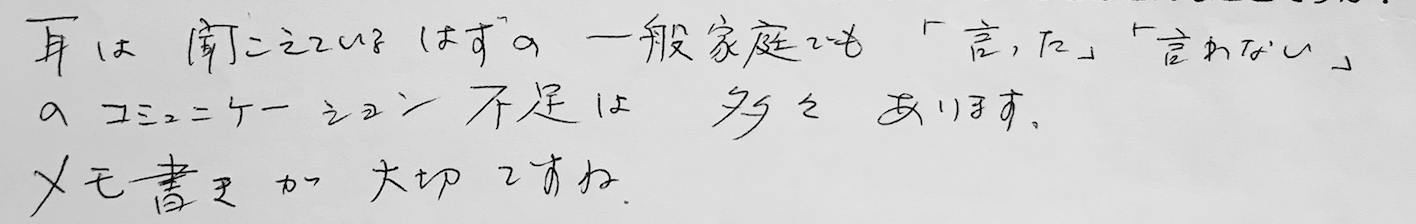 耳は聞こえているはずの一般家庭でも「言った」「言わない」
のコミュニケーション不足は多々あります。
メモ書きが大切ですね.